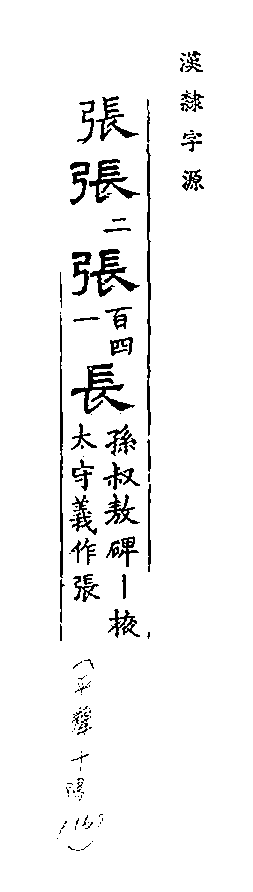 漢隸字源
張張二張百四一長孫叔敖碑丨掖太守義作張
平聲十陽